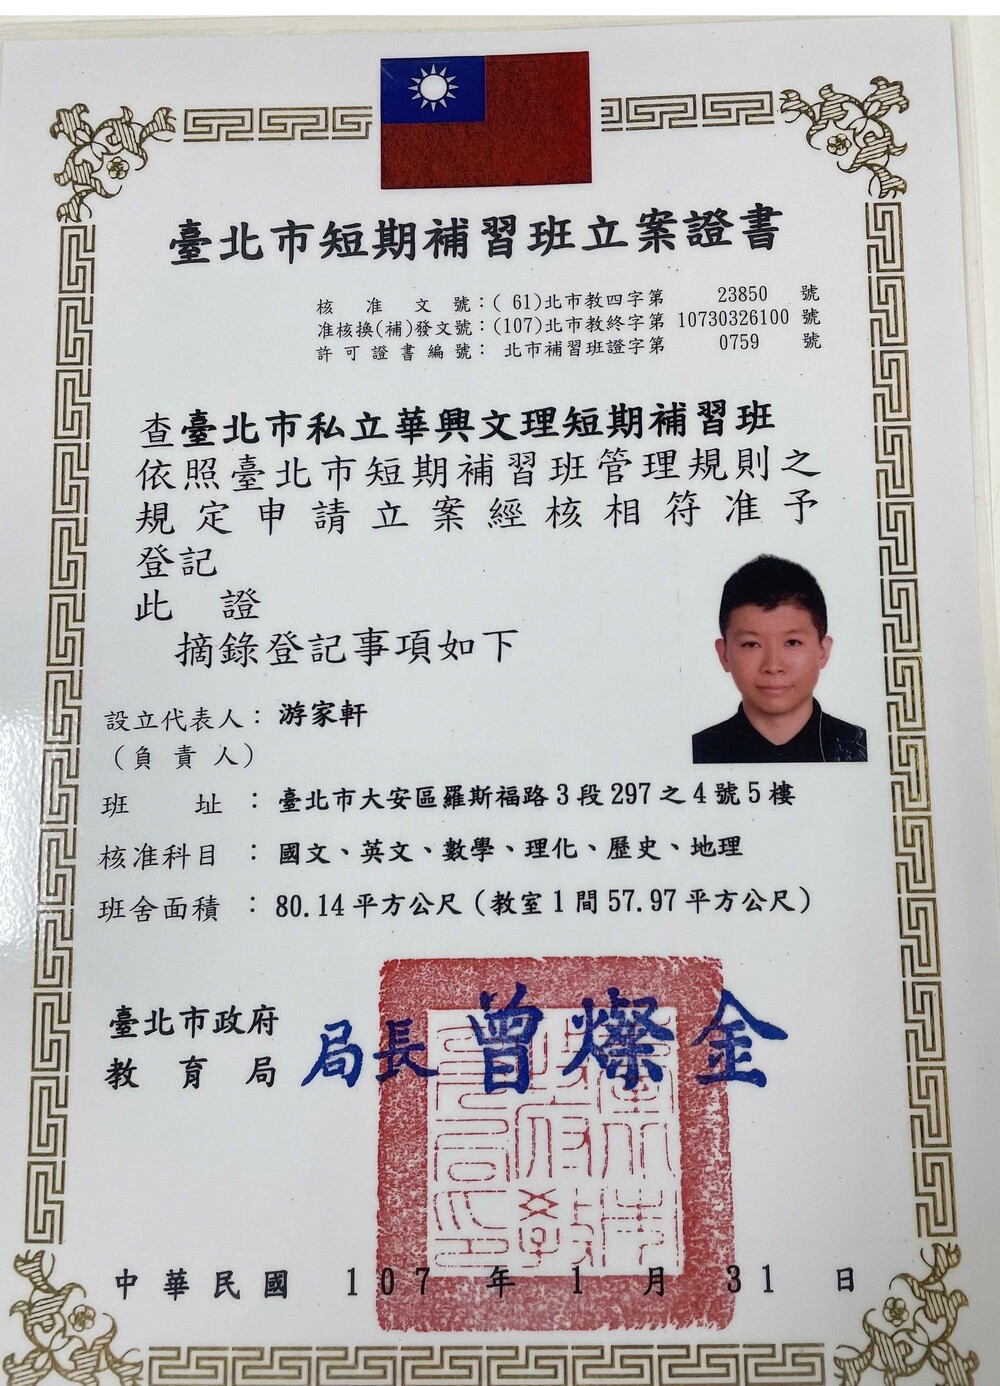 臺北市短期補習班立案證書
核准文號：( 61)北市教四字第 23850 號
准核換(補)發文號：(107)北市教終字第 10730326100 號
許可證書編號： 北市補習班證字第 0759 號
查臺北市私立華興文理短期補習班
依照臺北市短期補習班管理規則之
規定申請立案經核相符准予
登記
此 證
摘錄登記事項如下
設立代表人：游家軒
（負責人）
班 址 ：臺北市大安區羅斯福路3段297之4號5樓
核准科目 ：國文、英文、數學、理化、歷史、地理
班舍面積 ：80.14平方公尺（教室1間57.97平方公尺）
臺北市政府
教育局 局長 曾燦金
臺北市政府教育局印
中華民國 107 年 1 月 31 日